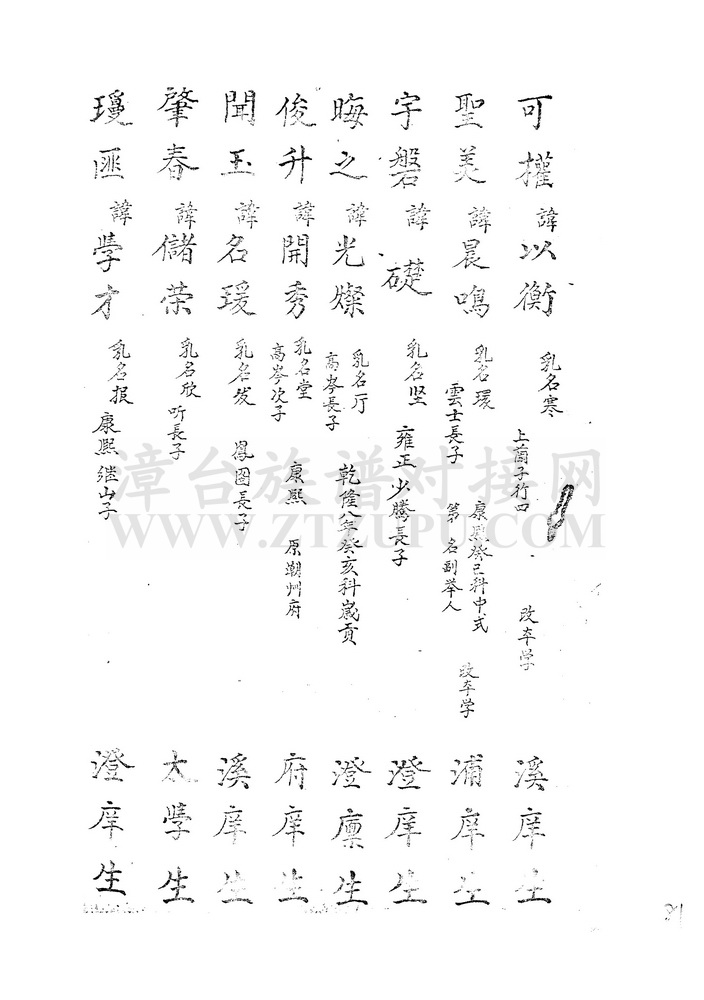 可權 諱以衡 乳名寒 上蔄子行四 改夲学 溪庠生
聖美 諱晨鳴 乳名環 雲士長子 康熙癸巳科中式 第 名副举人 改夲学 浦庠生
宇磐 諱礎 乳名坚 雍正 少騰長子 澄庠生
晦之 諱光燦 乳名厅 高岑長子 乾隆八年癸亥科歲貢 澄廪生
俊升 諱開秀 乳名堂 高岑次子 康熙 原潮州府 府庠生
聞玉 諱名瑗 乳名发 鳳圖長子 溪庠生
肇春 諱儲荣 乳名欣 听長子 太學生
璦匪 諱學才 乳名报 康熙 继山子 澄庠生
漳台族谱对接网
WWW.ZTZUPU.COM